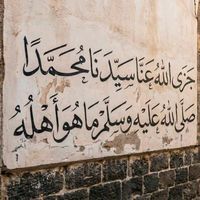 جَزَى اللهُ عَنَّا سَيِّدَنَا مُحَمَّدًا
صَلَّى اللهُ عَلَيْهِ وَسَلَّمَ مَا هُوَ أَهْلُهُ